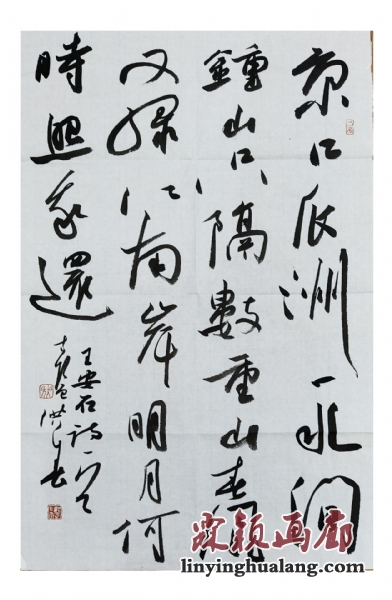 京口瓜洲一水間
鍾山只隔數重山春風
又綠江南岸明月何
時照我還
王安石詩一首
颖画廊
linyinghualang.com